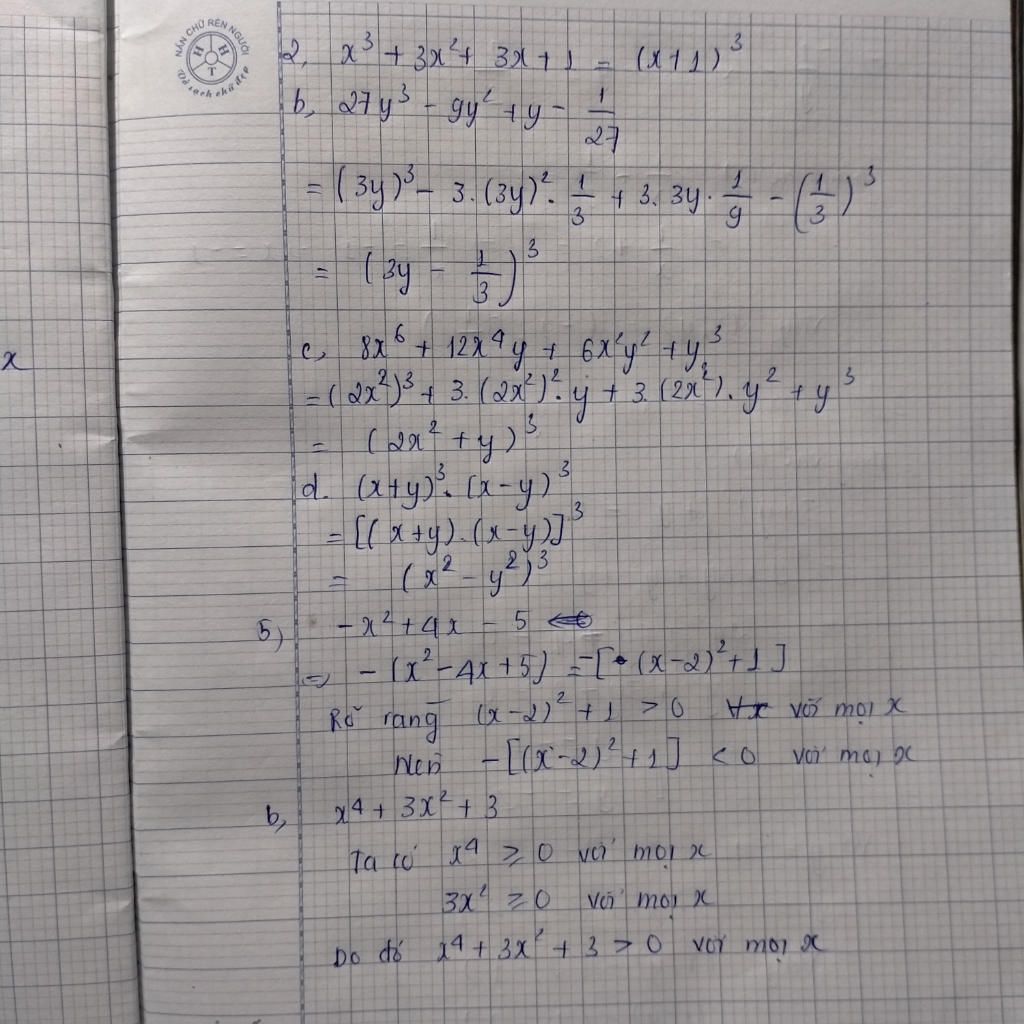 NẮN CHỮ RÈN NGƯỜI
H H T
Vở sạch chữ đẹp
2, x³ + 3x² + 3x + 1 = (x+1)³
b, 27y³ - 9y² + y - 1/27
= (3y)³ - 3.(3y)² . 1/3 + 3. 3y . 1/9 - (1/3)³
= (3y - 1/3)³
c, 8x⁶ + 12x⁴y + 6x²y² + y³
x
= (2x²)³ + 3.(2x²)² . y + 3.(2x²) . y² + y³
= (2x² + y)³
d. (x+y)³ . (x-y)³
= [(x+y).(x-y)]³
= (x² - y²)³
5, -x² + 4x - 5
=> -(x² - 4x + 5) = -[(x-2)² + 1]
Rõ ràng (x-2)² + 1 > 0 ∀x với mọi x
Nên -[(x-2)² + 1] < 0 với mọi x
b, x⁴ + 3x² + 3
Ta có x⁴ ≥ 0 với mọi x
3x² ≥ 0 với mọi x
Do đó x⁴ + 3x² + 3 > 0 với mọi x